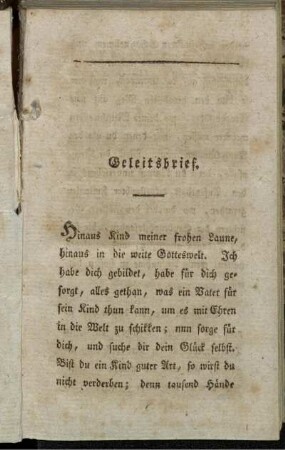 Geleitsbrief.
Hinaus Kind meiner frohen Laune,
hinaus in die weite Gotteswelt. Ich
habe dich gebildet, habe für dich ge-
sorgt, alles gethan, was ein Vater für
sein Kind thun kann, um es mit Ehren
in die Welt zu schikken; nun sorge für
dich, und suche dir dein Glück selbst.
Bist du ein Kind guter Art, so wirst du
nicht verderben; denn tausend Hände